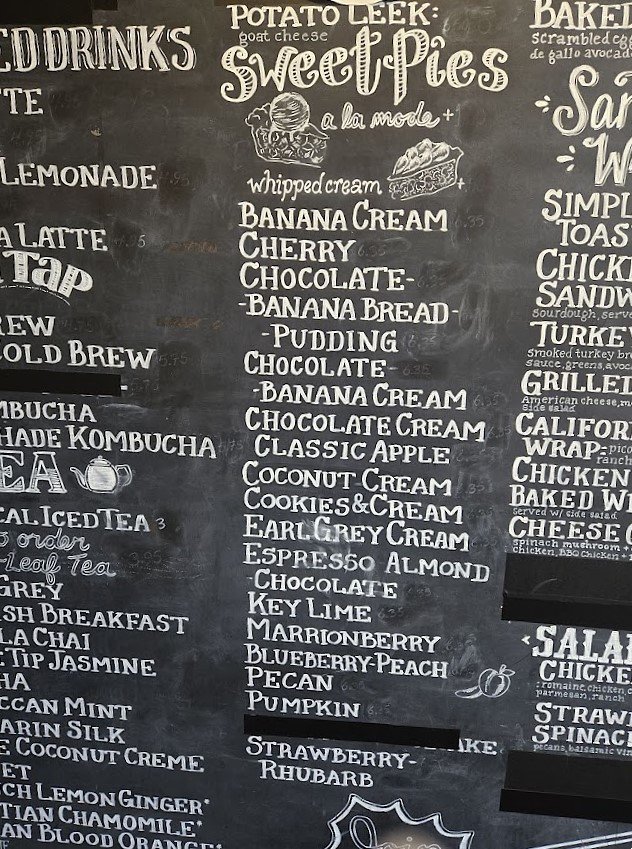 ED DRINKS
TTE
LEMONADE
A LATTE
Tap
REW
COLD BREW
MBUCHA
HADE KOMBUCHA
TEA
CAL ICED TEA 3
o order
-Leaf Tea
GREY
ISH BREAKFAST
LA CHAI
E TIP JASMINE
HA
CCAN MINT
ARIN SILK
E COCONUT CREME
ET
CH LEMON GINGER*
TIAN CHAMOMILE*
AN BLOOD ORANGE*
POTATO LEEK:
goat cheese
Sweet Pies
a la mode +
whipped cream +
BANANA CREAM
CHERRY 6.35
CHOCOLATE-
-BANANA BREAD-
-PUDDING
CHOCOLATE-
-BANANA CREAM
CHOCOLATE CREAM
CLASSIC APPLE
COCONUT CREAM
COOKIES & CREAM
EARL GREY CREAM
ESPRESSO ALMOND
-CHOCOLATE
KEY LIME
MARRIONBERRY
BLUEBERRY-PEACH
PECAN
PUMPKIN
AKE
STRAWBERRY-
RHUBARB
Join
BAKED
scrambled egg
de gallo avocad
San
W
SIMPL
TOAS
CHICKE
SANDW
sourdough, serve
TURKEY
smoked turkey bre
sauce, greens, avoca
GRILLED
American cheese, m
side salad
CALIFOR
WRAP: pico
ranch
CHICKEN
BAKED WI
served w/ side salad
CHEESE Q
spinach mushroom +
chicken, BBQ Chicken +
SALAD
CHICKE
romaine, chicken, c
parmesan, ranch
STRAW
SPINAC
pecans, balsamic vin